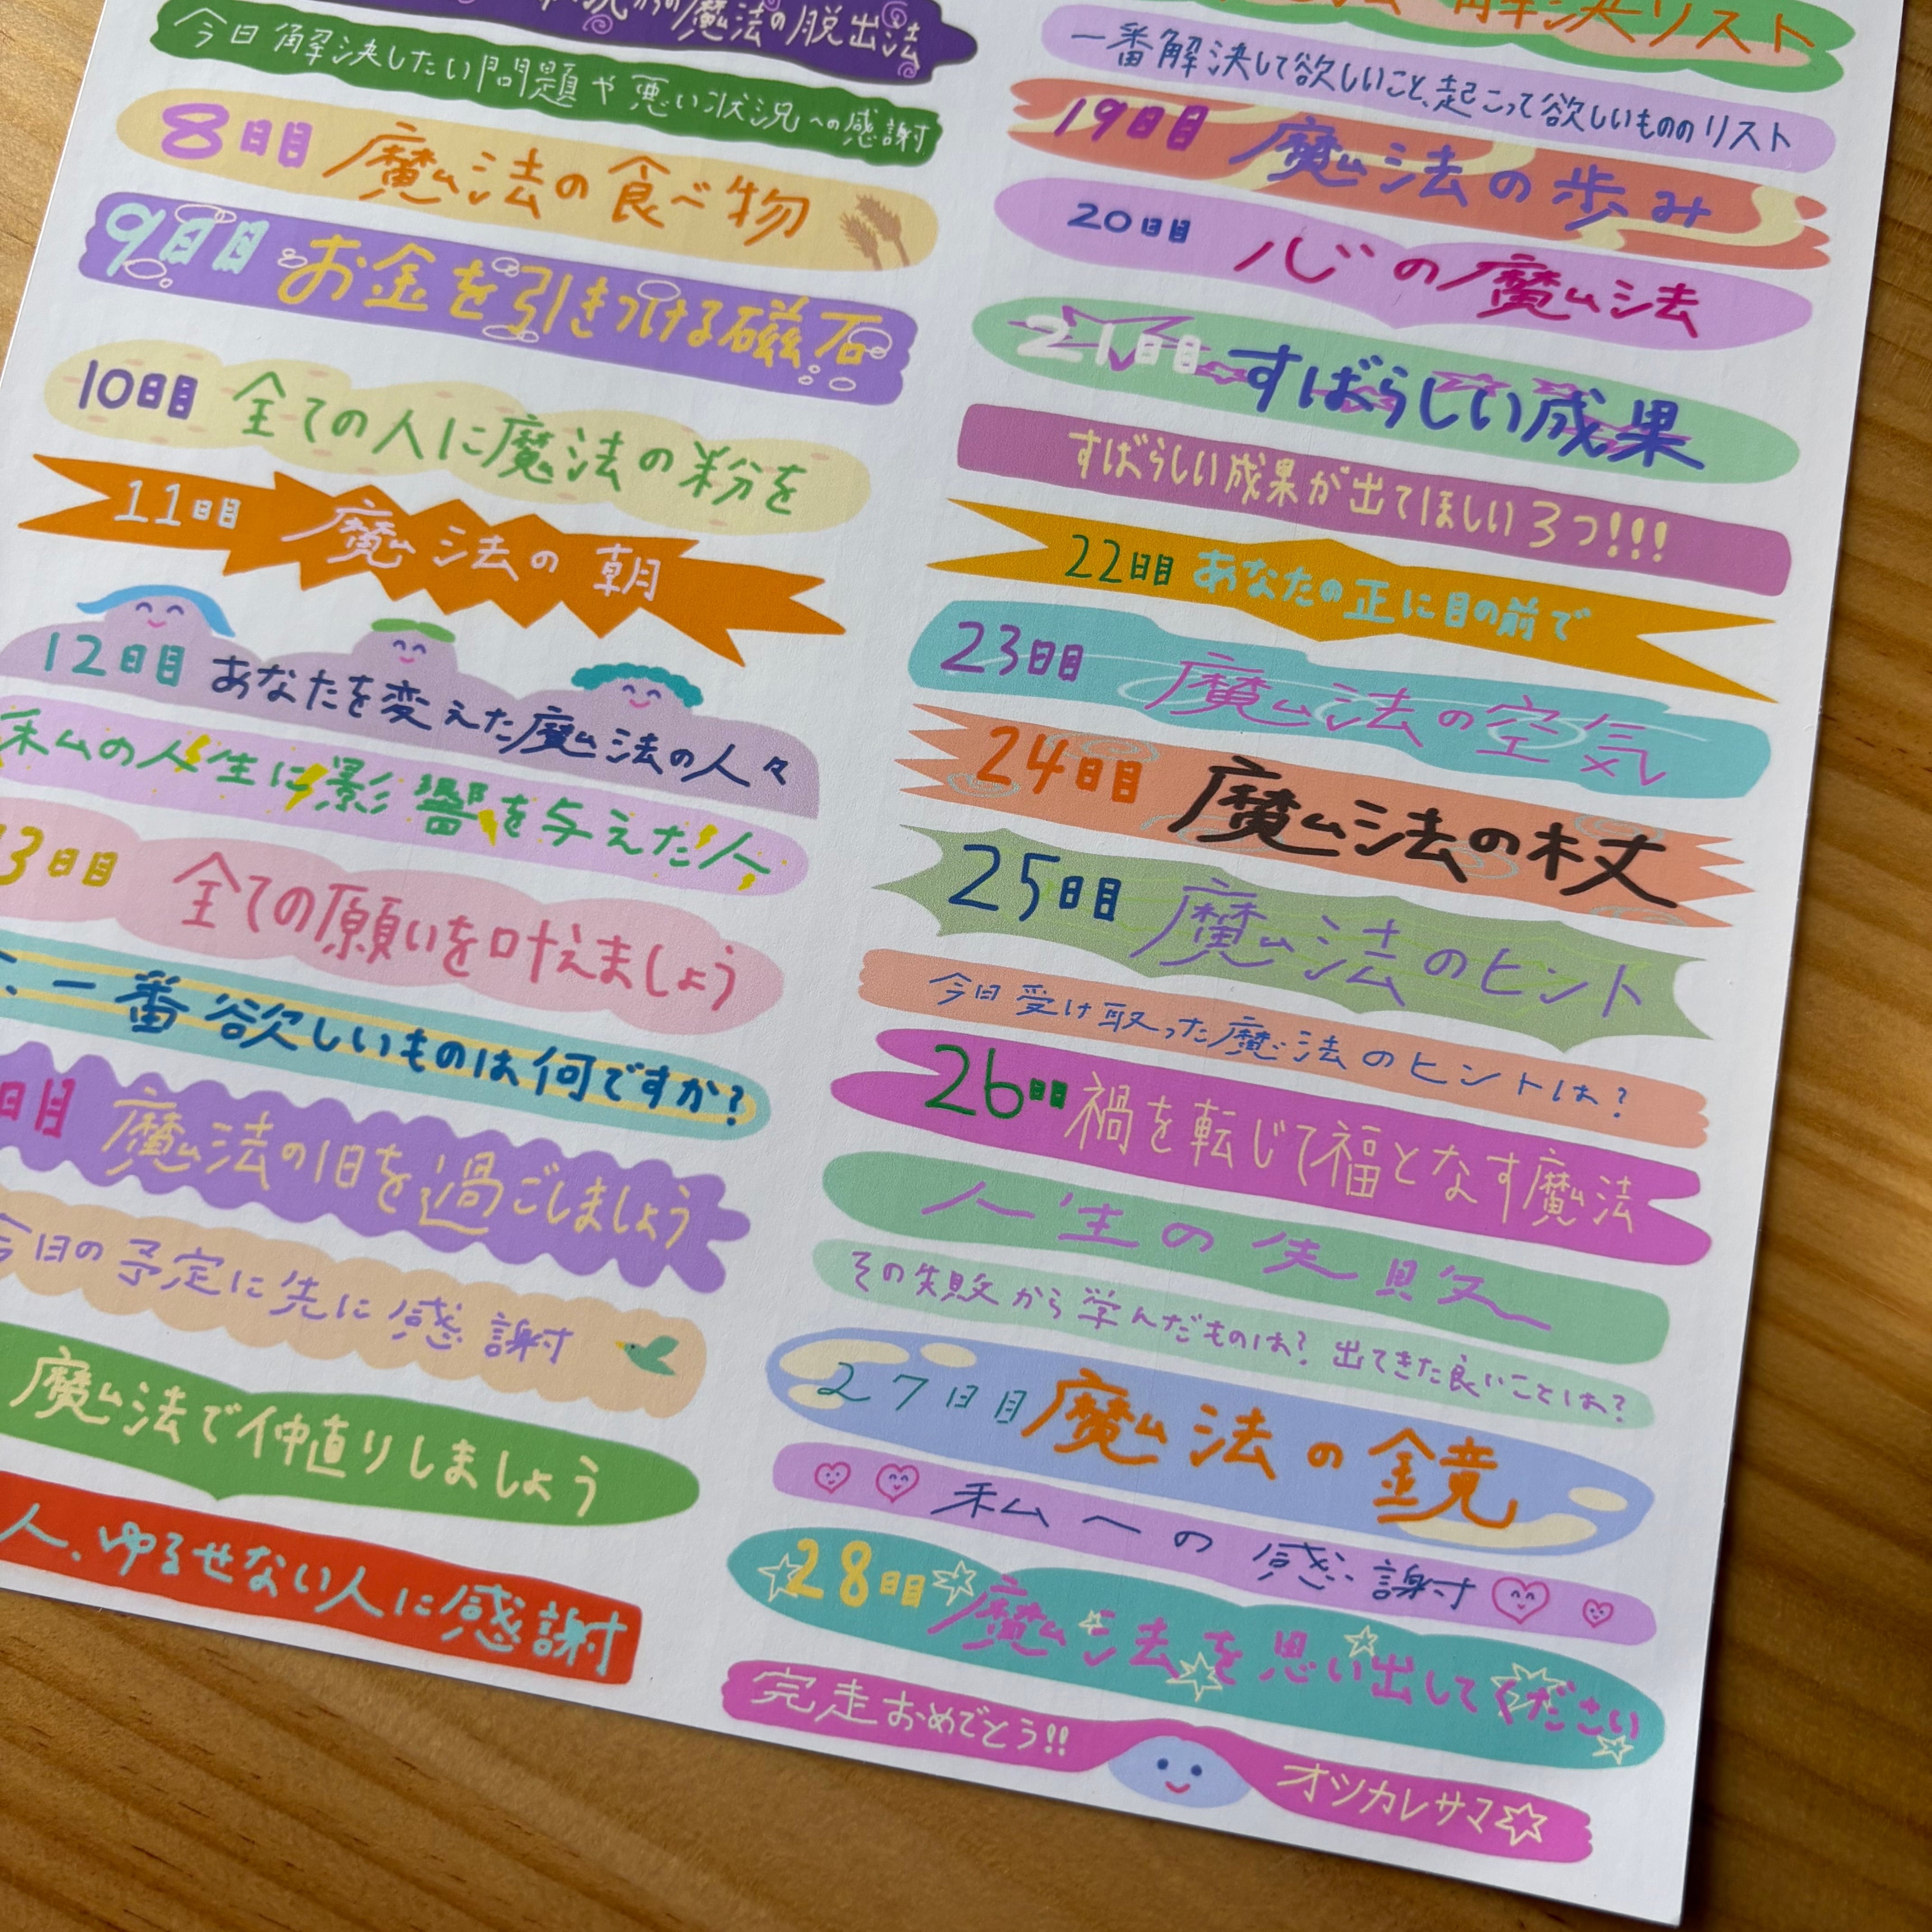 魔法の脱出法
今日解決したい問題や悪い状況への感謝
8日目 魔法の食べ物
9日目 お金を引きつける磁石
10日目 全ての人に魔法の粉を
11日目 魔法の朝
12日目 あなたを変えた魔法の人々
私の人生に影響を与えた人
3日目 全ての願いを叶えましょう
一番欲しいものは何ですか?
日目 魔法の1日を過ごしましょう
今日の予定に先に感謝
魔法で仲直りしましょう
人、ゆるせない人に感謝
解決リスト
一番解決して欲しいこと、起こって欲しいもののリスト
19日目 魔法の歩み
20日目 心の魔法
21日目 すばらしい成果
すばらしい成果が出てほしい3つ!!!
22日目 あなたの正に目の前で
23日目 魔法の空気
24日目 魔法の杖
25日目 魔法のヒント
今日受け取った魔法のヒントは?
26日目 禍を転じて福となす魔法
人生の失敗
その失敗から学んだものは? 出てきた良いことは?
27日目 魔法の鏡
私への感謝
28日目 魔法を思い出してください
完走おめでとう!! オツカレサマ☆